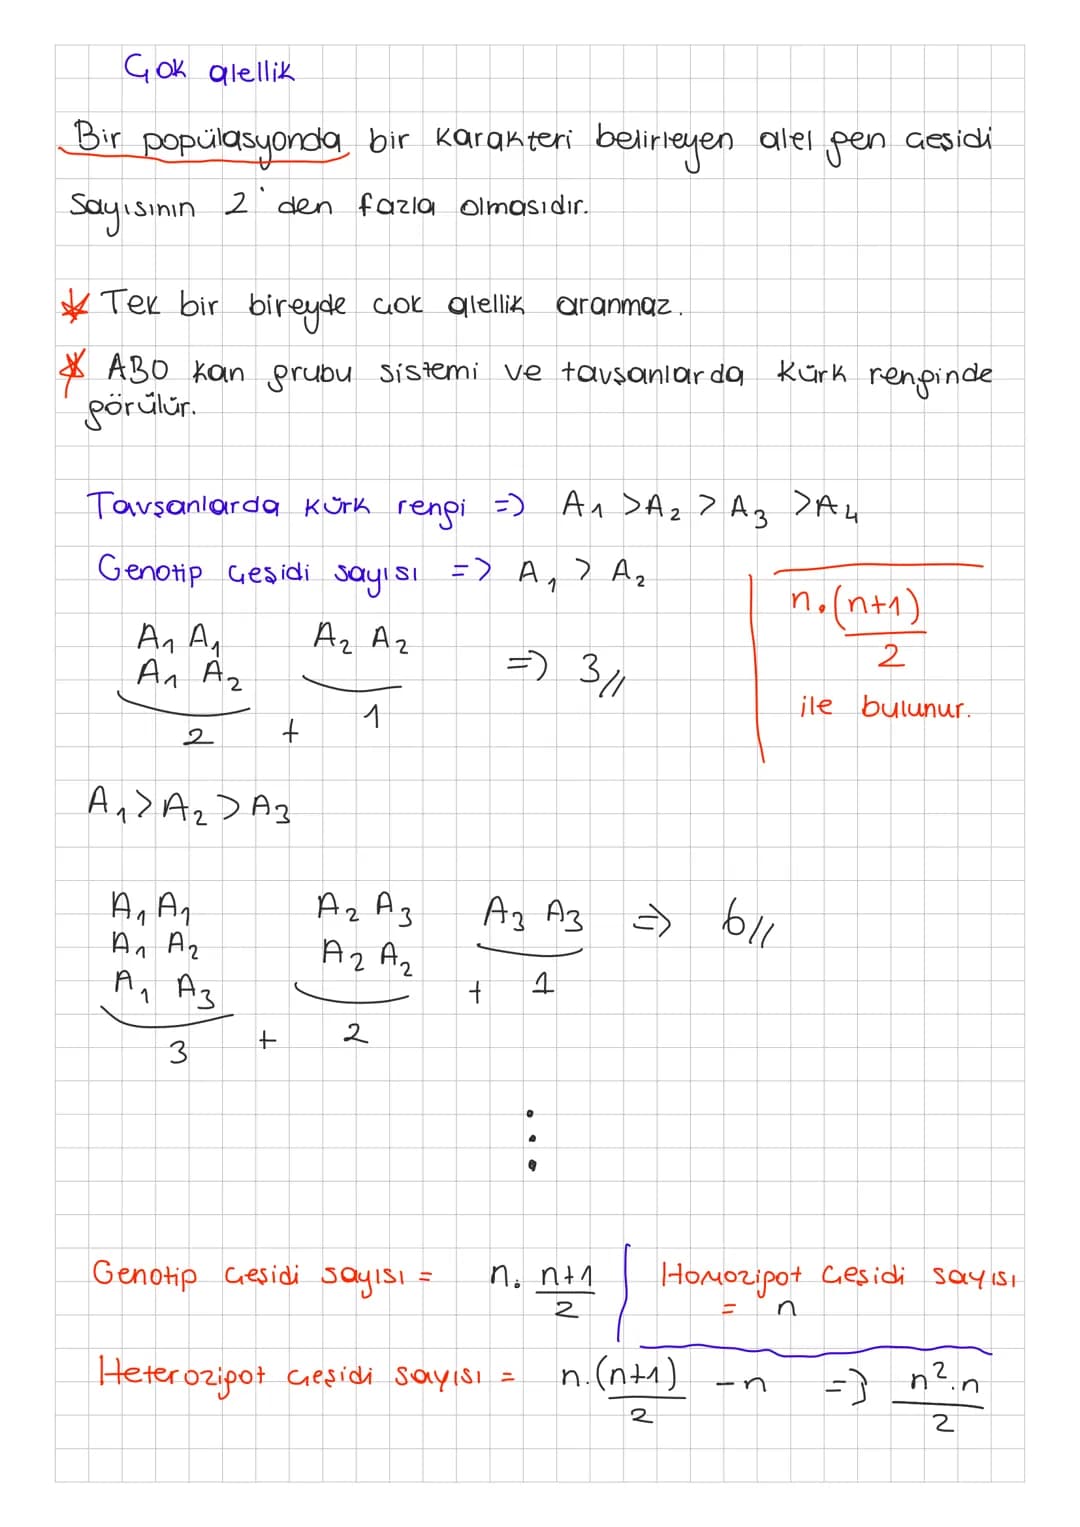 Çok alellik
Bir popülasyonda bir karakteri belirleyen alel gen çeşidi
sayısının 2'den fazla olmasıdır.
* Tek bir bireyde çok alellik aranmaz.
* AB0 kan grubu sistemi ve tavşanlarda kürk renginde
görülür.
Tavşanlarda kürk rengi => A₁ > A₂ > A₃ > A₄
Genotip çeşidi sayısı => A₁ > A₂
n.(n+1)
2
ile bulunur.
A₁ A₁ A₂ A₂
A₁ A₂ => 3//
2 + 1
A₁ > A₂ > A₃
A₁ A₁ A₂ A₃ A₃ A₃ => 6//
A₁ A₂ A₂ A₂
A₁ A₃ + 1
3 + 2
Genotip çeşidi sayısı = n. n+1
2
Homozigot çeşidi sayısı
= n
Heterozigot çeşidi sayısı = n.(n+1) - n => n².n
2 2